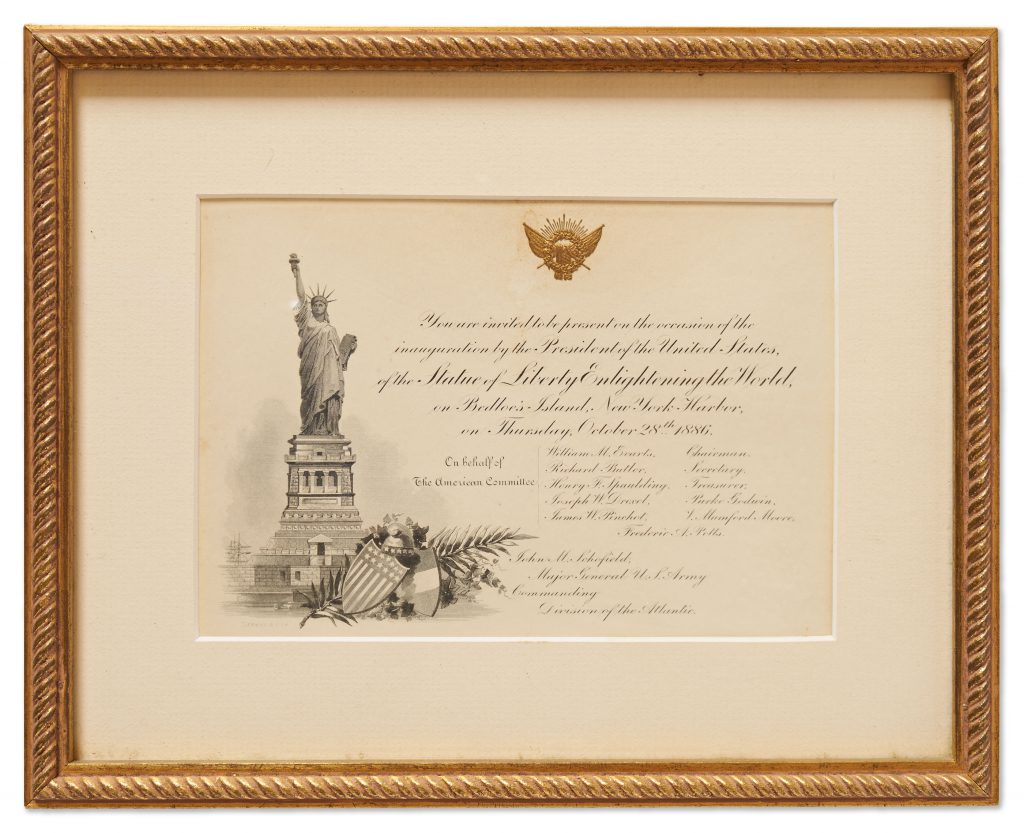 You are invited to be present on the occasion of the
inauguration by the President of the United States,
of the Statue of Liberty Enlightening the World,
on Bedloe's Island, New York Harbor,
on Thursday, October 28th 1886.
On behalf of
The American Committee
William M. Evarts, Chairman.
Richard Butler, Secretary.
Henry F. Spaulding, Treasurer.
Joseph W. Drexel, Parke Godwin,
James W. Pinchot, V. Mumford Moore,
Frederic A. Potts.
John M. Schofield,
Major General U.S. Army
Commanding
Division of the Atlantic.